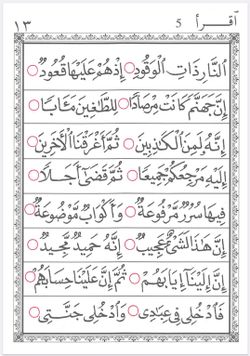 ١٣ 5 اَقْرَأْ
اَلنَّارِ ذَاتِ الْوَقُودِ ○ اِذْ هُمْ عَلَيْهَا قُعُودٌ ○
اِنَّ جَهَنَّمَ كَانَتْ مِرْصَادًا ○ لِلطَّاغِينَ مَآبًا ○
اِنَّهُ لَمِنَ الْكَاذِبِينَ ○ ثُمَّ اَغْرَقْنَا الْاٰخَرِينَ ○
اِلَيْهِ مَرْجِعُكُمْ جَمِيعًا ○ ثُمَّ قَضٰٓى اَجَلًا ○
فِيهَا سُرُرٌ مَرْفُوعَةٌ ○ وَاَكْوَابٌ مَوْضُوعَةٌ ○
اِنَّ هٰذَا لَشَيْءٌ عَجِيبٌ ○ اِنَّهُ حَمِيدٌ مَجِيدٌ ○
اِنَّ اِلَيْنَا اِيَابَهُمْ ○ ثُمَّ اِنَّ عَلَيْنَا حِسَابَهُمْ ○
فَادْخُلِي فِي عِبَادِي ○ وَادْخُلِي جَنَّتِي ○